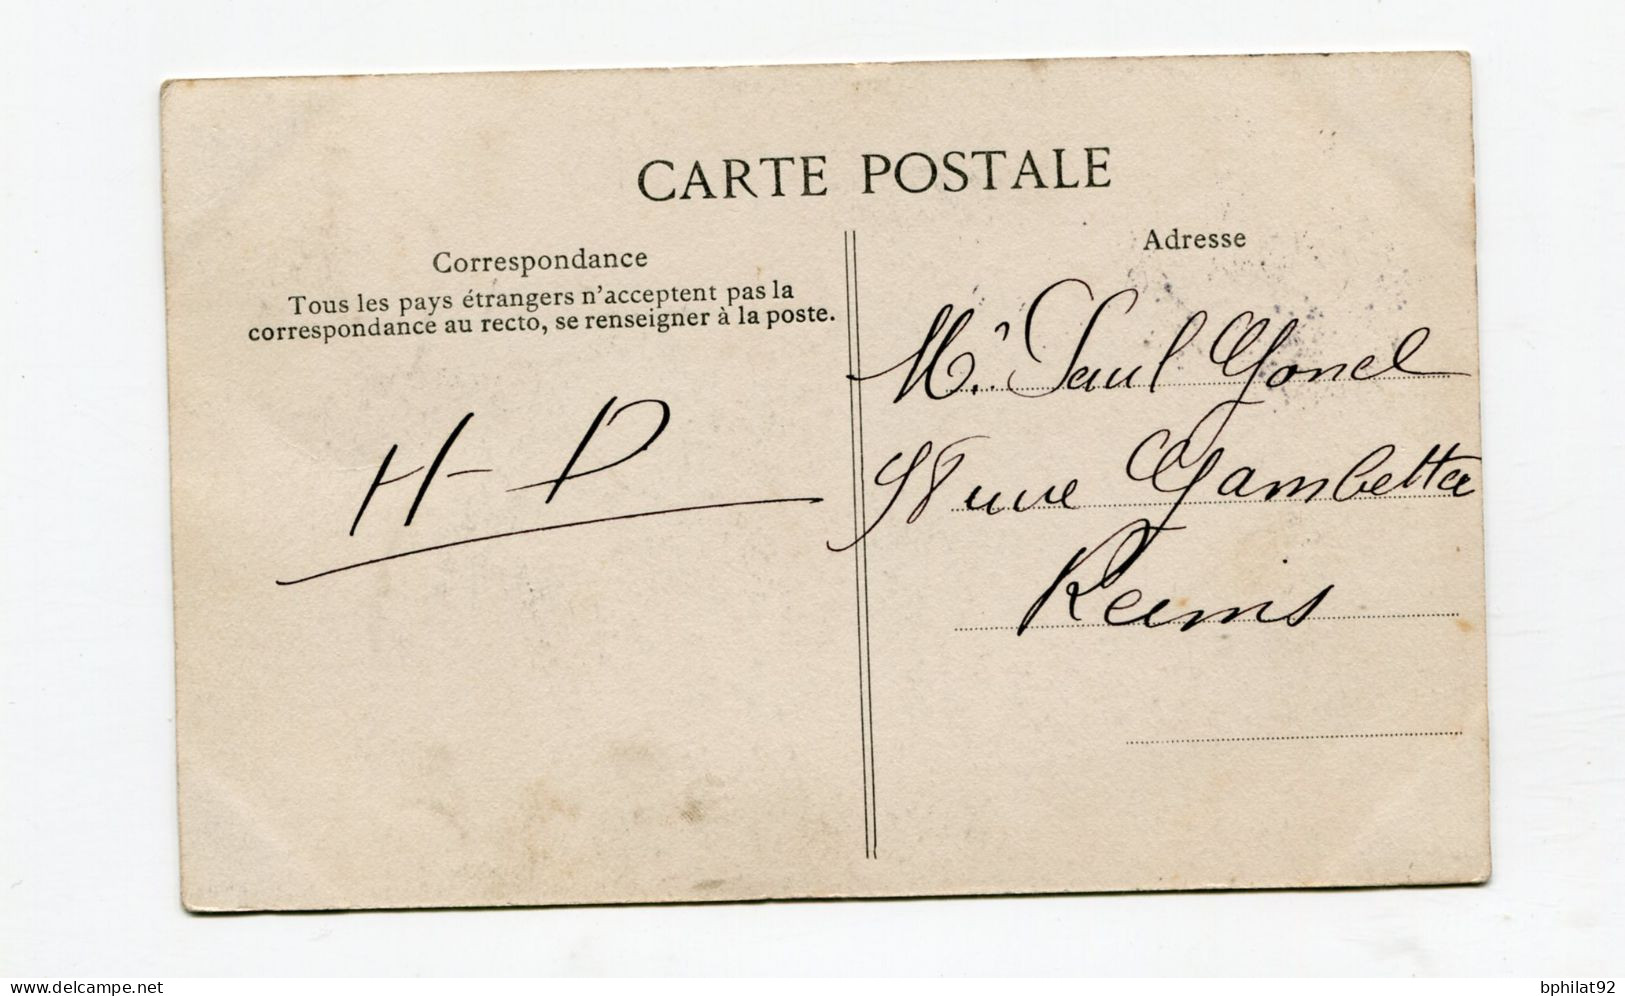 CARTE POSTALE
Correspondance
Tous les pays étrangers n'acceptent pas la
correspondance au recto, se renseigner à la poste.
H-D
Adresse
Mr Paul
rue Gambetta
Reims
www.delcampe.net
bphilat92